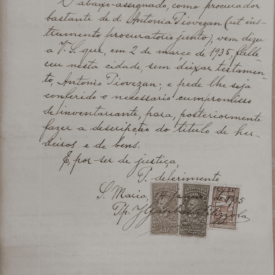 O abaixo assignado, como procurador
bastante de d. Antonia Piovezan (ut ins-
trumento procuratorio junto), vem dizer
a V. S. que, em 2 de março de 1935, falle-
ceu nesta cidade, sem deixar testamen-
to, Antonio Piovezan; e pede lhe seja
conferido o necessario compromisso
de inventariante, para, posteriormente
fazer a descripção do titulo de her-
deiros e de bens.
E por ser de justiça,
P. deferimento
S. Maria, de 1935
Pp.